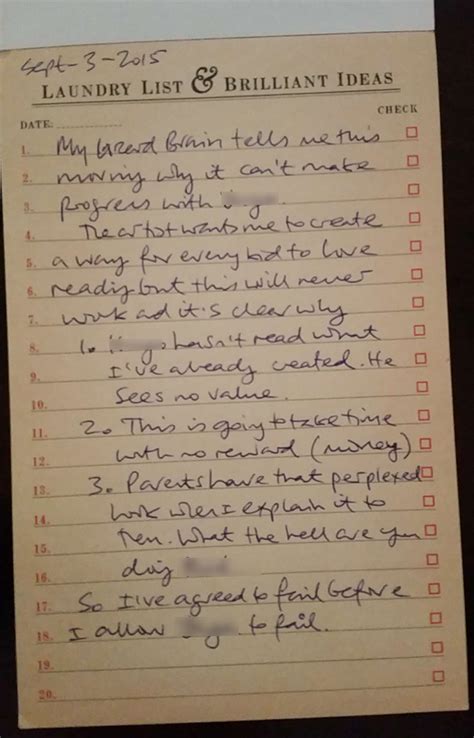 Sept-3-2015
LAUNDRY LIST & BRILLIANT IDEAS
CHECK
DATE:
1. My Lizard Brain tells me this
2. morning why it can't make
3. progress with
4. The artist wants me to create
5. a way for every kid to love
6. reading but this will never
7. work and it's clear why
8. 1. hasn't read what
9. I've already created. He
10. sees no value.
11. 2. This is going to take time
12. with no reward (money)
13. 3. Parents have that perplexed
14. look when I explain it to
15. them. What the hell are you
16. doing
17. So I've agreed to fail before
18. I allow to fail.
19.
20.